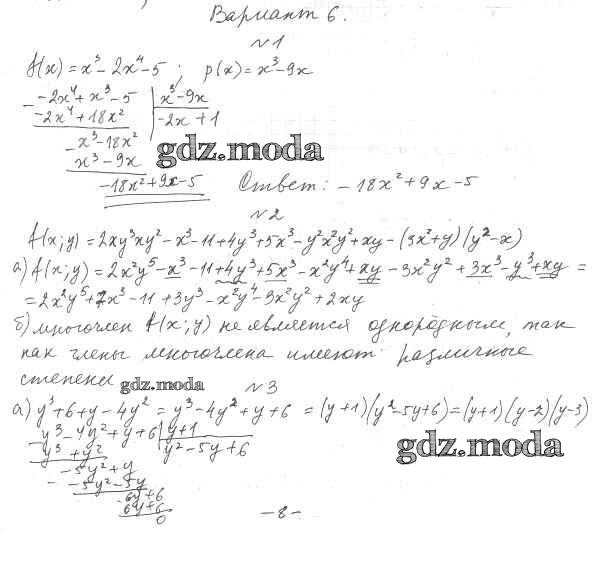 Вариант 6.
№1
f(x) = x³ - 2x⁴ - 5 ; p(x) = x³ - 9x
-2x⁴ + x³ - 5 | x³ - 9x
-2x⁴ + 18x² | -2x + 1
x³ - 18x²
x³ - 9x
gdz.moda
-18x² + 9x - 5 Ответ: -18x² + 9x - 5
№2
f(x;y) = 2xy³xy² - x³ - 11 + 4y³ + 5x³ - y²x²y² + xy - (3x² + y)(y² - x)
а) f(x;y) = 2x²y⁵ - x³ - 11 + 4y³ + 5x³ - x²y⁴ + xy - 3x²y² + 3x³ - y³ + xy =
= 2x²y⁵ + 7x³ - 11 + 3y³ - x²y⁴ - 3x²y² + 2xy
б) многочлен f(x;y) не является однородным, так
как члены многочлена имеют различные
степени gdz.moda
№3
а) y³ + 6 + y - 4y² = y³ - 4y² + y + 6 = (y+1)(y² - 5y + 6) = (y+1)(y-2)(y-3)
y³ - 4y² + y + 6 | y + 1
y³ + y² | y² - 5y + 6
gdz.moda
-5y² + y
-5y² - 5y
6y + 6
6y + 6
0
-8-